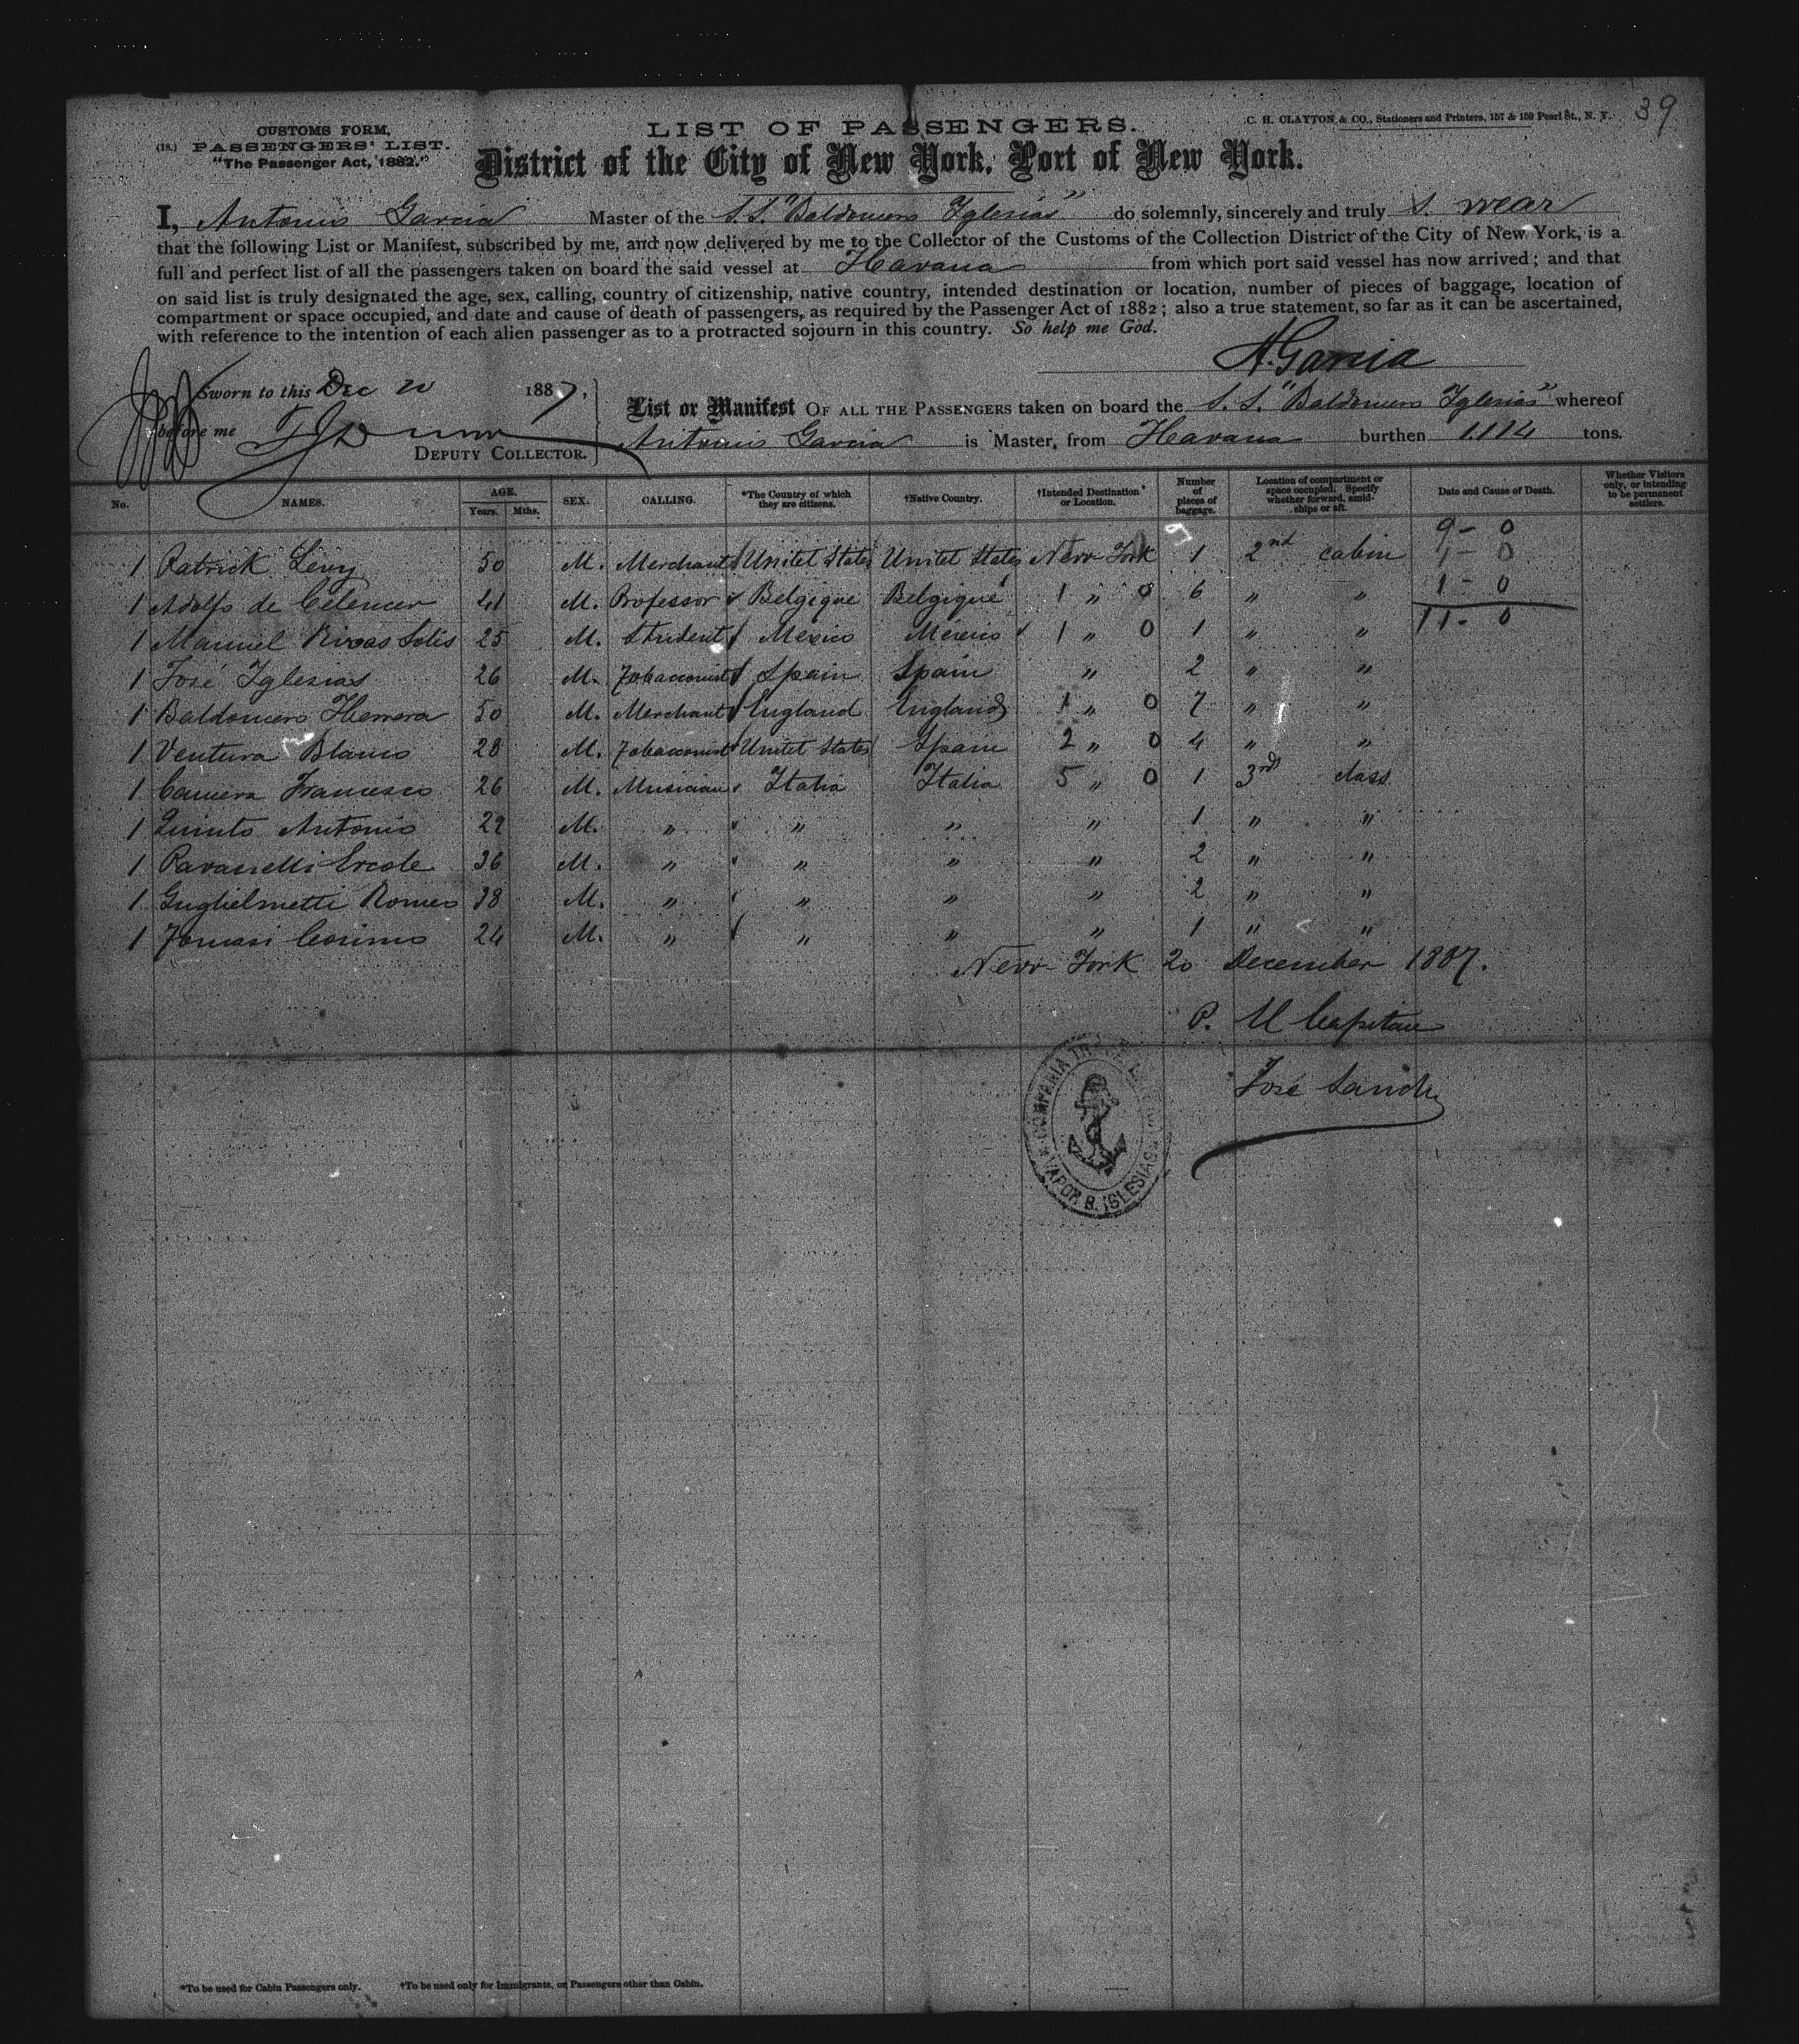 39
CUSTOMS FORM,
(18.) PASSENGERS' LIST.
"The Passenger Act, 1882."
LIST OF PASSENGERS.
C. H. CLAYTON & CO., Stationers and Printers, 157 & 159 Pearl St., N. Y.
District of the City of New York, Port of New York.
I, Antonio Garcia Master of the S.S. "Baldomero Iglesias" do solemnly, sincerely and truly s. wear
that the following List or Manifest, subscribed by me, and now delivered by me to the Collector of the Customs of the Collection District of the City of New York, is a
full and perfect list of all the passengers taken on board the said vessel at Havana from which port said vessel has now arrived; and that
on said list is truly designated the age, sex, calling, country of citizenship, native country, intended destination or location, number of pieces of baggage, location of
compartment or space occupied, and date and cause of death of passengers, as required by the Passenger Act of 1882; also a true statement, so far as it can be ascertained,
with reference to the intention of each alien passenger as to a protracted sojourn in this country. So help me God.
A. Garcia
Sworn to this Dec 20 1887,
before me
DEPUTY COLLECTOR.
List or Manifest OF ALL THE PASSENGERS taken on board the S. S. "Baldomero Iglesias" whereof
Antonio Garcia is Master, from Havana burthen 1.114 tons.
No. NAMES. AGE. Years. Mths. SEX. CALLING. *The Country of which they are citizens. †Native Country. †Intended Destination or Location. Number of pieces of baggage. Location of compartment or space occupied. Specify whether forward, amidships or aft. Date and Cause of Death. Whether Visitors only, or intending to be permanent settlers.
9 - 0
1 Patrick Levy 50 M. Merchant Unitet States Unitet States New York 1 2nd cabin 1 - 0
1 Adolfo de 41 M. Professor Belgique Belgique 1 " 0 6 " " 1 - 0
1 Manuel Rivas Solis 25 M. Student Mexico Mexico 1 " 0 1 " " 11 - 0
1 José Iglesias 26 M. Tobacconist Spain Spain " 2 " "
1 Baldomero Herrera 50 M. Merchant England England 1 " 0 7 " "
1 Ventura Blanco 28 M. Tobacconist Unitet States Spain 2 " 0 4 " "
1 Camera Francesco 26 M. Musician Italia Italia 5 " 0 1 3rd class
1 Quinto Antonio 29 M. " " " " 1 " "
1 Pavanelli Ercole 36 M. " " " " 2 " "
1 Guglielmetti Romeo 38 M. " " " " 2 " "
1 Tomasi Cosimo 24 M. " " " " 1 " "
New York 20 December 1887.
P. El Capitan
José Sanch
COMPAÑIA
VAPOR B. IGLESIAS
*To be used for Cabin Passengers only. †To be used only for Immigrants, or Passengers other than Cabin.